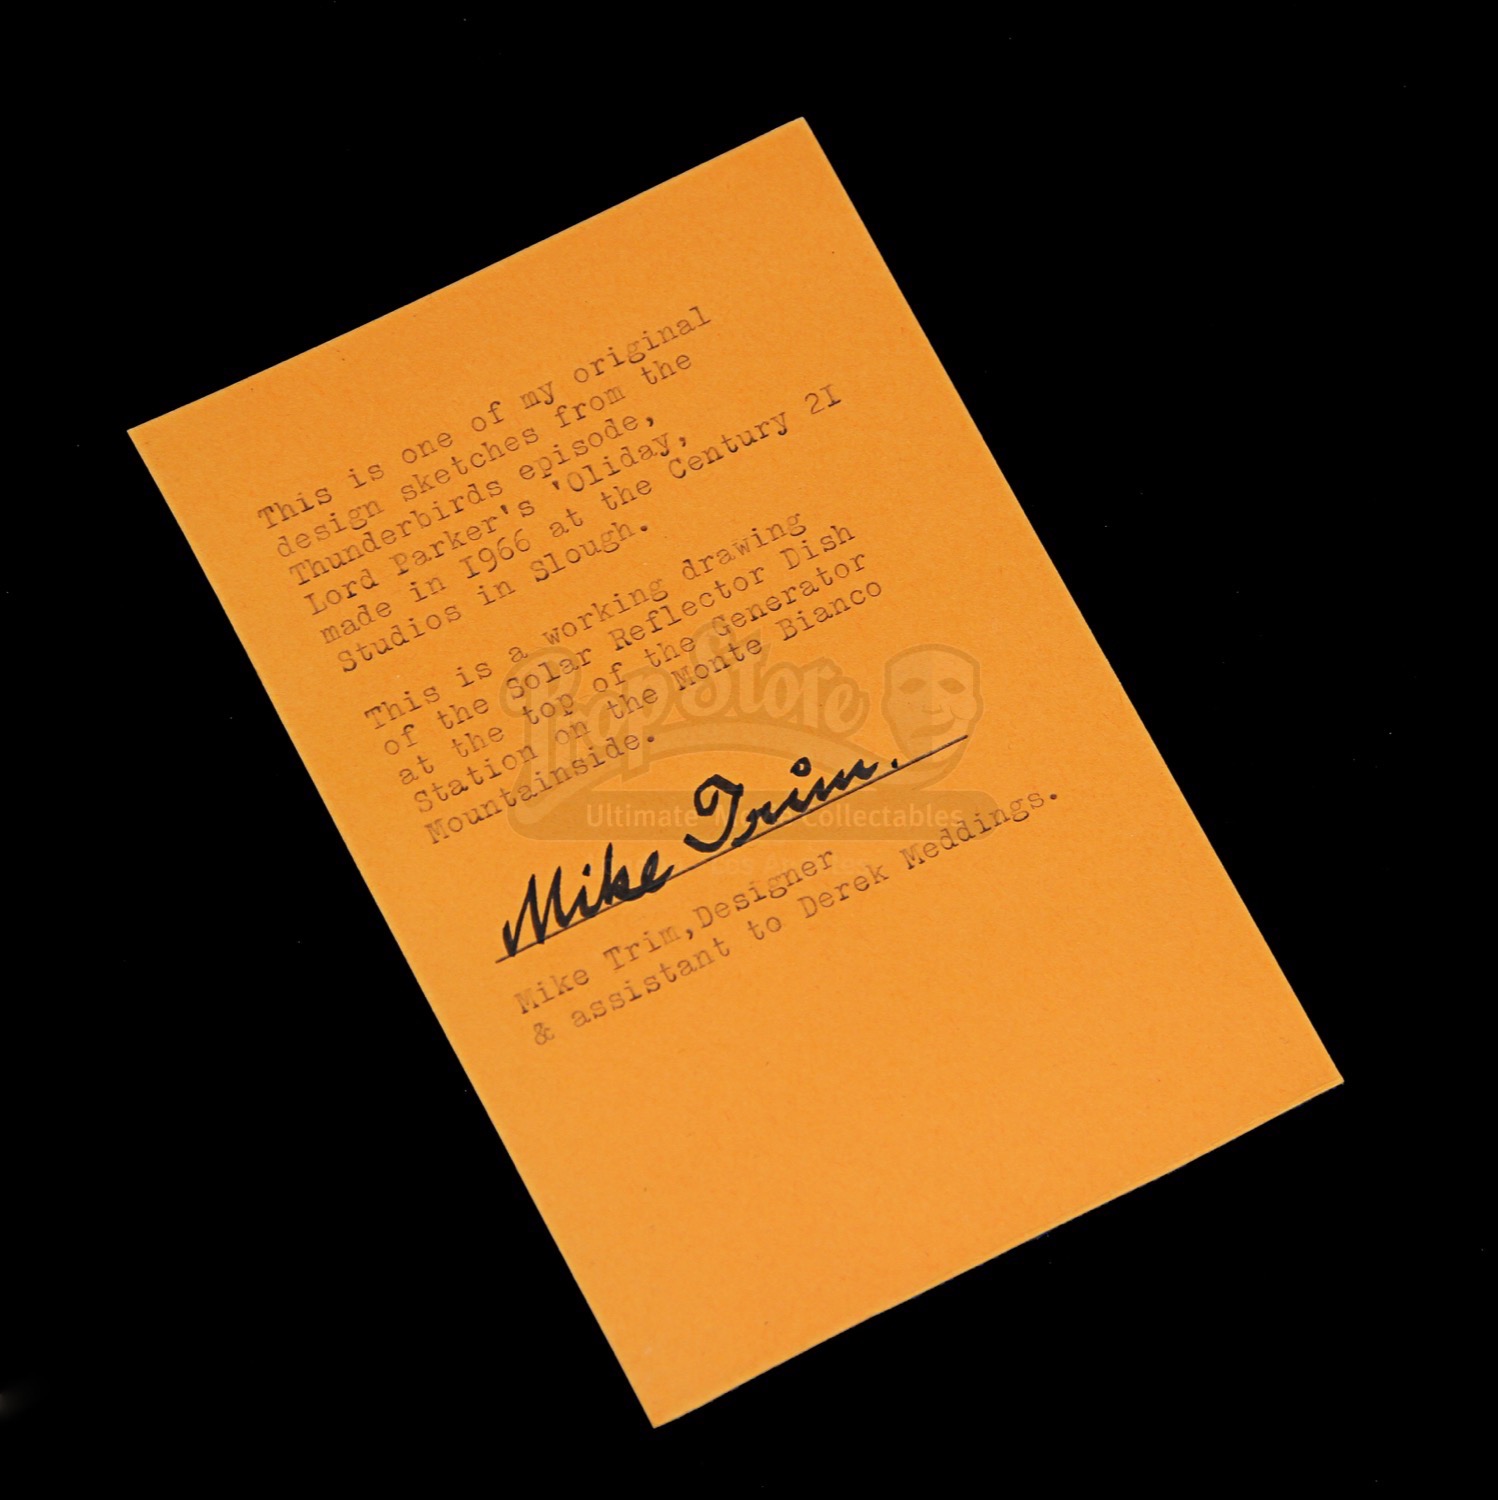 This is one of my original
design sketches from the
Thunderbirds episode,
Lord Parker's 'Oliday,
made in I966 at the Century 2I
Studios in Slough.
This is a working drawing
of the Solar Reflector Dish
at the top of the Generator
Station on the Monte Bianco
Mountainside.
Mike Trim.
Mike Trim,Designer
& assistant to Derek Meddings.
PropStore
Ultimate Movie Collectables